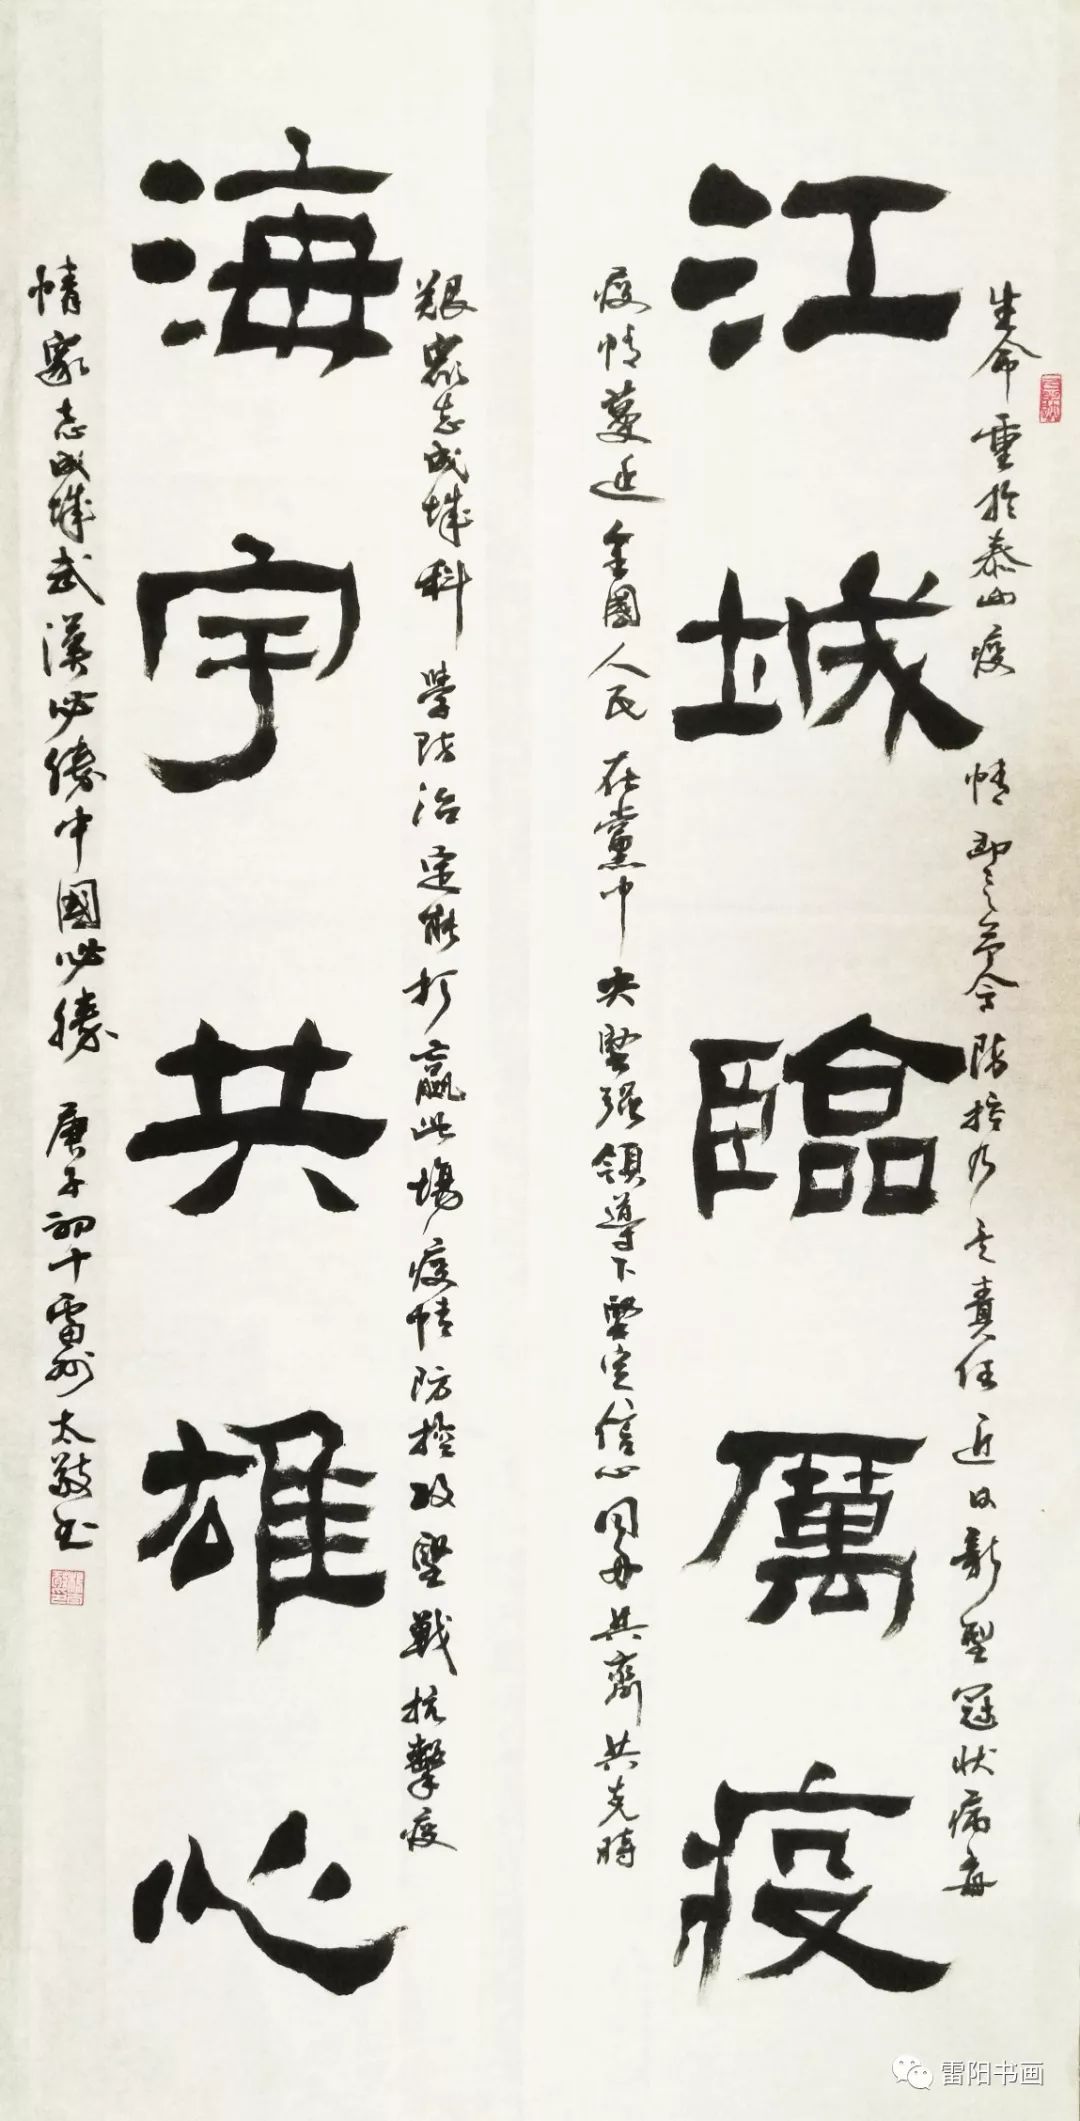 江城臨厲疫
海宇共雄心
生命重於泰山疫情即是命令防控乃是責任近日新型冠狀病毒
疫情蔓延全國人民在黨中央堅强領導下堅定信心同舟共齊共克時
艱眾志成城科學防治定能打贏此場疫情防控攻堅戰抗擊疫
情眾志成城武漢必勝中國必勝庚子初十雷州太敬书
雷阳书画